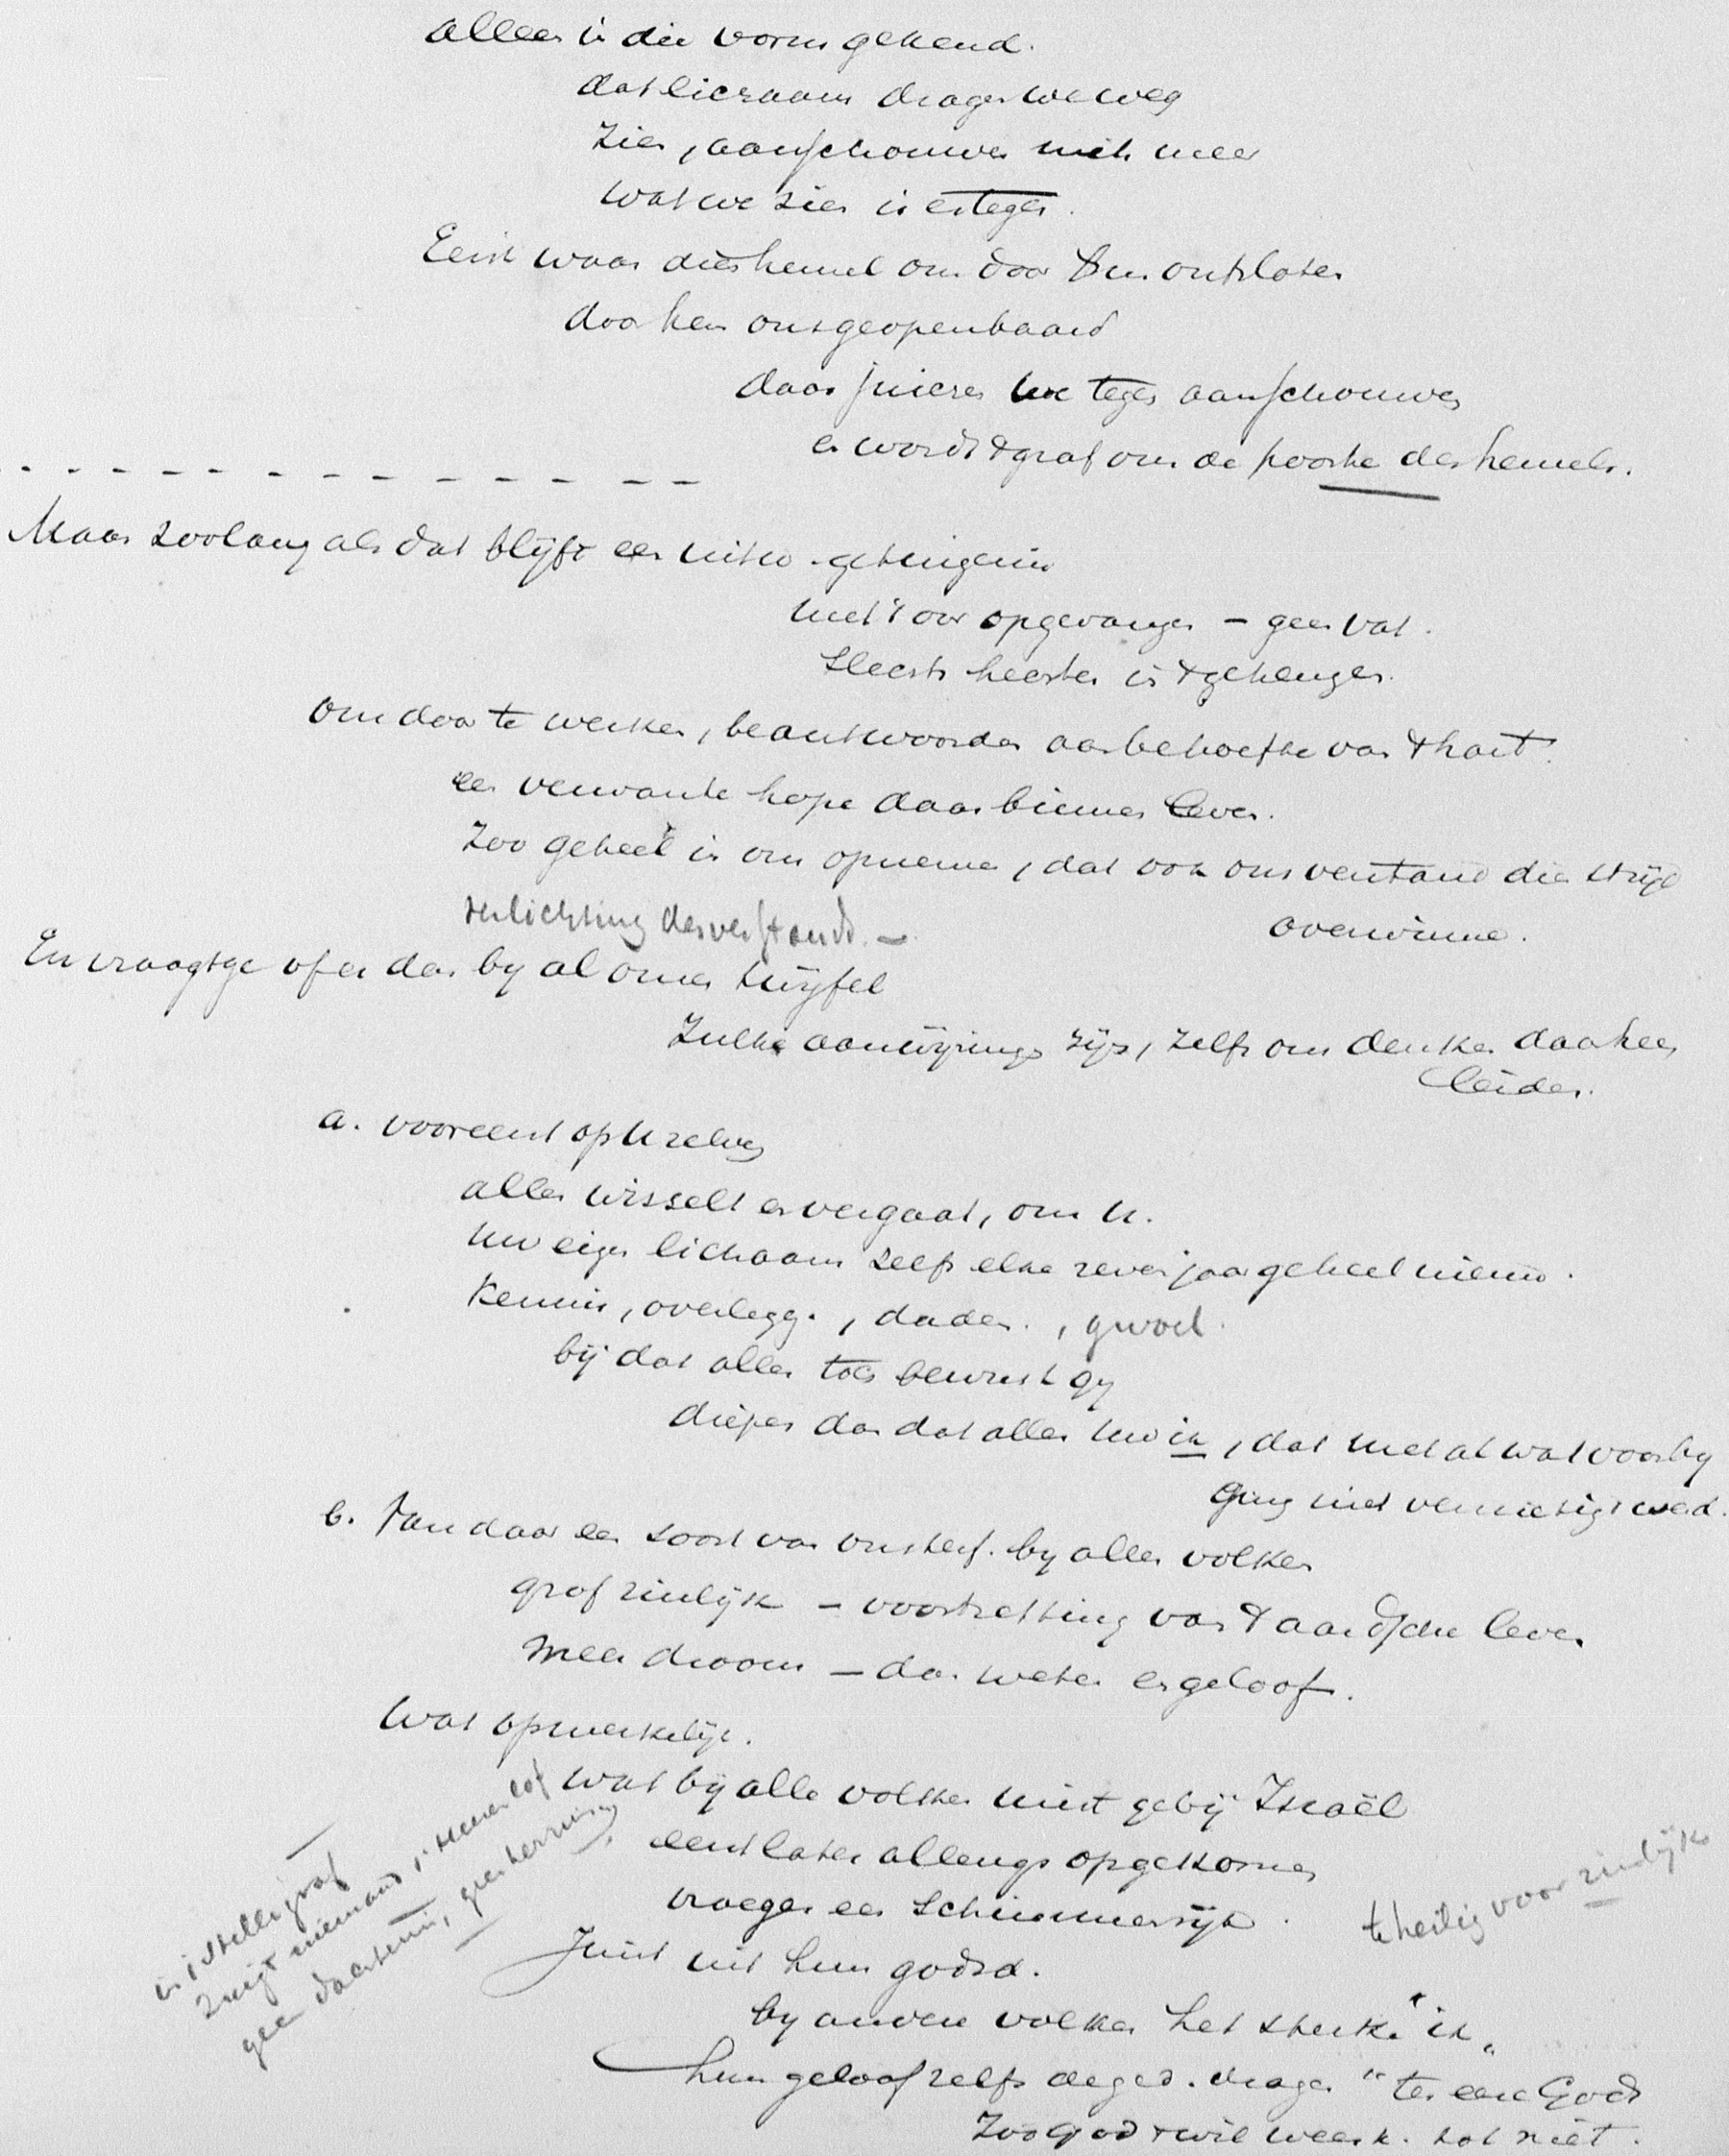 alleen in die vorm gekend.
dat lichaam dragen we weg
zien, aanschouwen niet meer
wat we zien is er tegen.
Eerst waar die hemel ons door ontsloten
door hem ons geopenbaard
daar juichen we tegen aanschouwen
en wordt t graf ons de poorte des hemels.
Maar zoolang als dat blijft een uitw. getuigenis
met 't oor opgevangen — geen vat.
slechts heerten is t getuigen.
Om door te werken, beantwoorden aan behoefte van t hart.
een verwante hope daar binnen leven.
Zoo geheel in ons opneme, dat ook ons verstand die strijd
overwinne.
verlichting des verstands. —
En vraagt ge of er dan by al onze twijfel
Zulke aanwijzingen zijn, zelfs ons denken daarheen
leiden.
a. vooreerst op U zelven
alles wisselt en vergaat, om U.
Uw eigen lichaam zelfs elke zeven jaar geheel nieuw.
Kennis, overlegg., daden., gevoel.
bij dat alles toch bewust gy
dieper dan dat alles Uw ik, dat met al wat voorby
ging niet vernietigt werd.
b. Van daar een soort van onsterf. by alle volken
grof zinlijk — voortzetting van t aardsche leven
meer droom — dan weten en geloof.
Wat opmerkelijk.
wat bij alle volken mist ge bij Israël
eerst later allengs opgekomen
vroeger een schimmenrijk.
te heilig voor zinlijk
in 't stille graf
zingt niemand 's Heeren lof
geen dachtenis, geen herinnering
Juist uit hun godsd.
by andere volken het sterke "ik"
hun geloof zelfs de ged. dragen "ter eere Gods
Zoo God t wil weer k. tot niet.